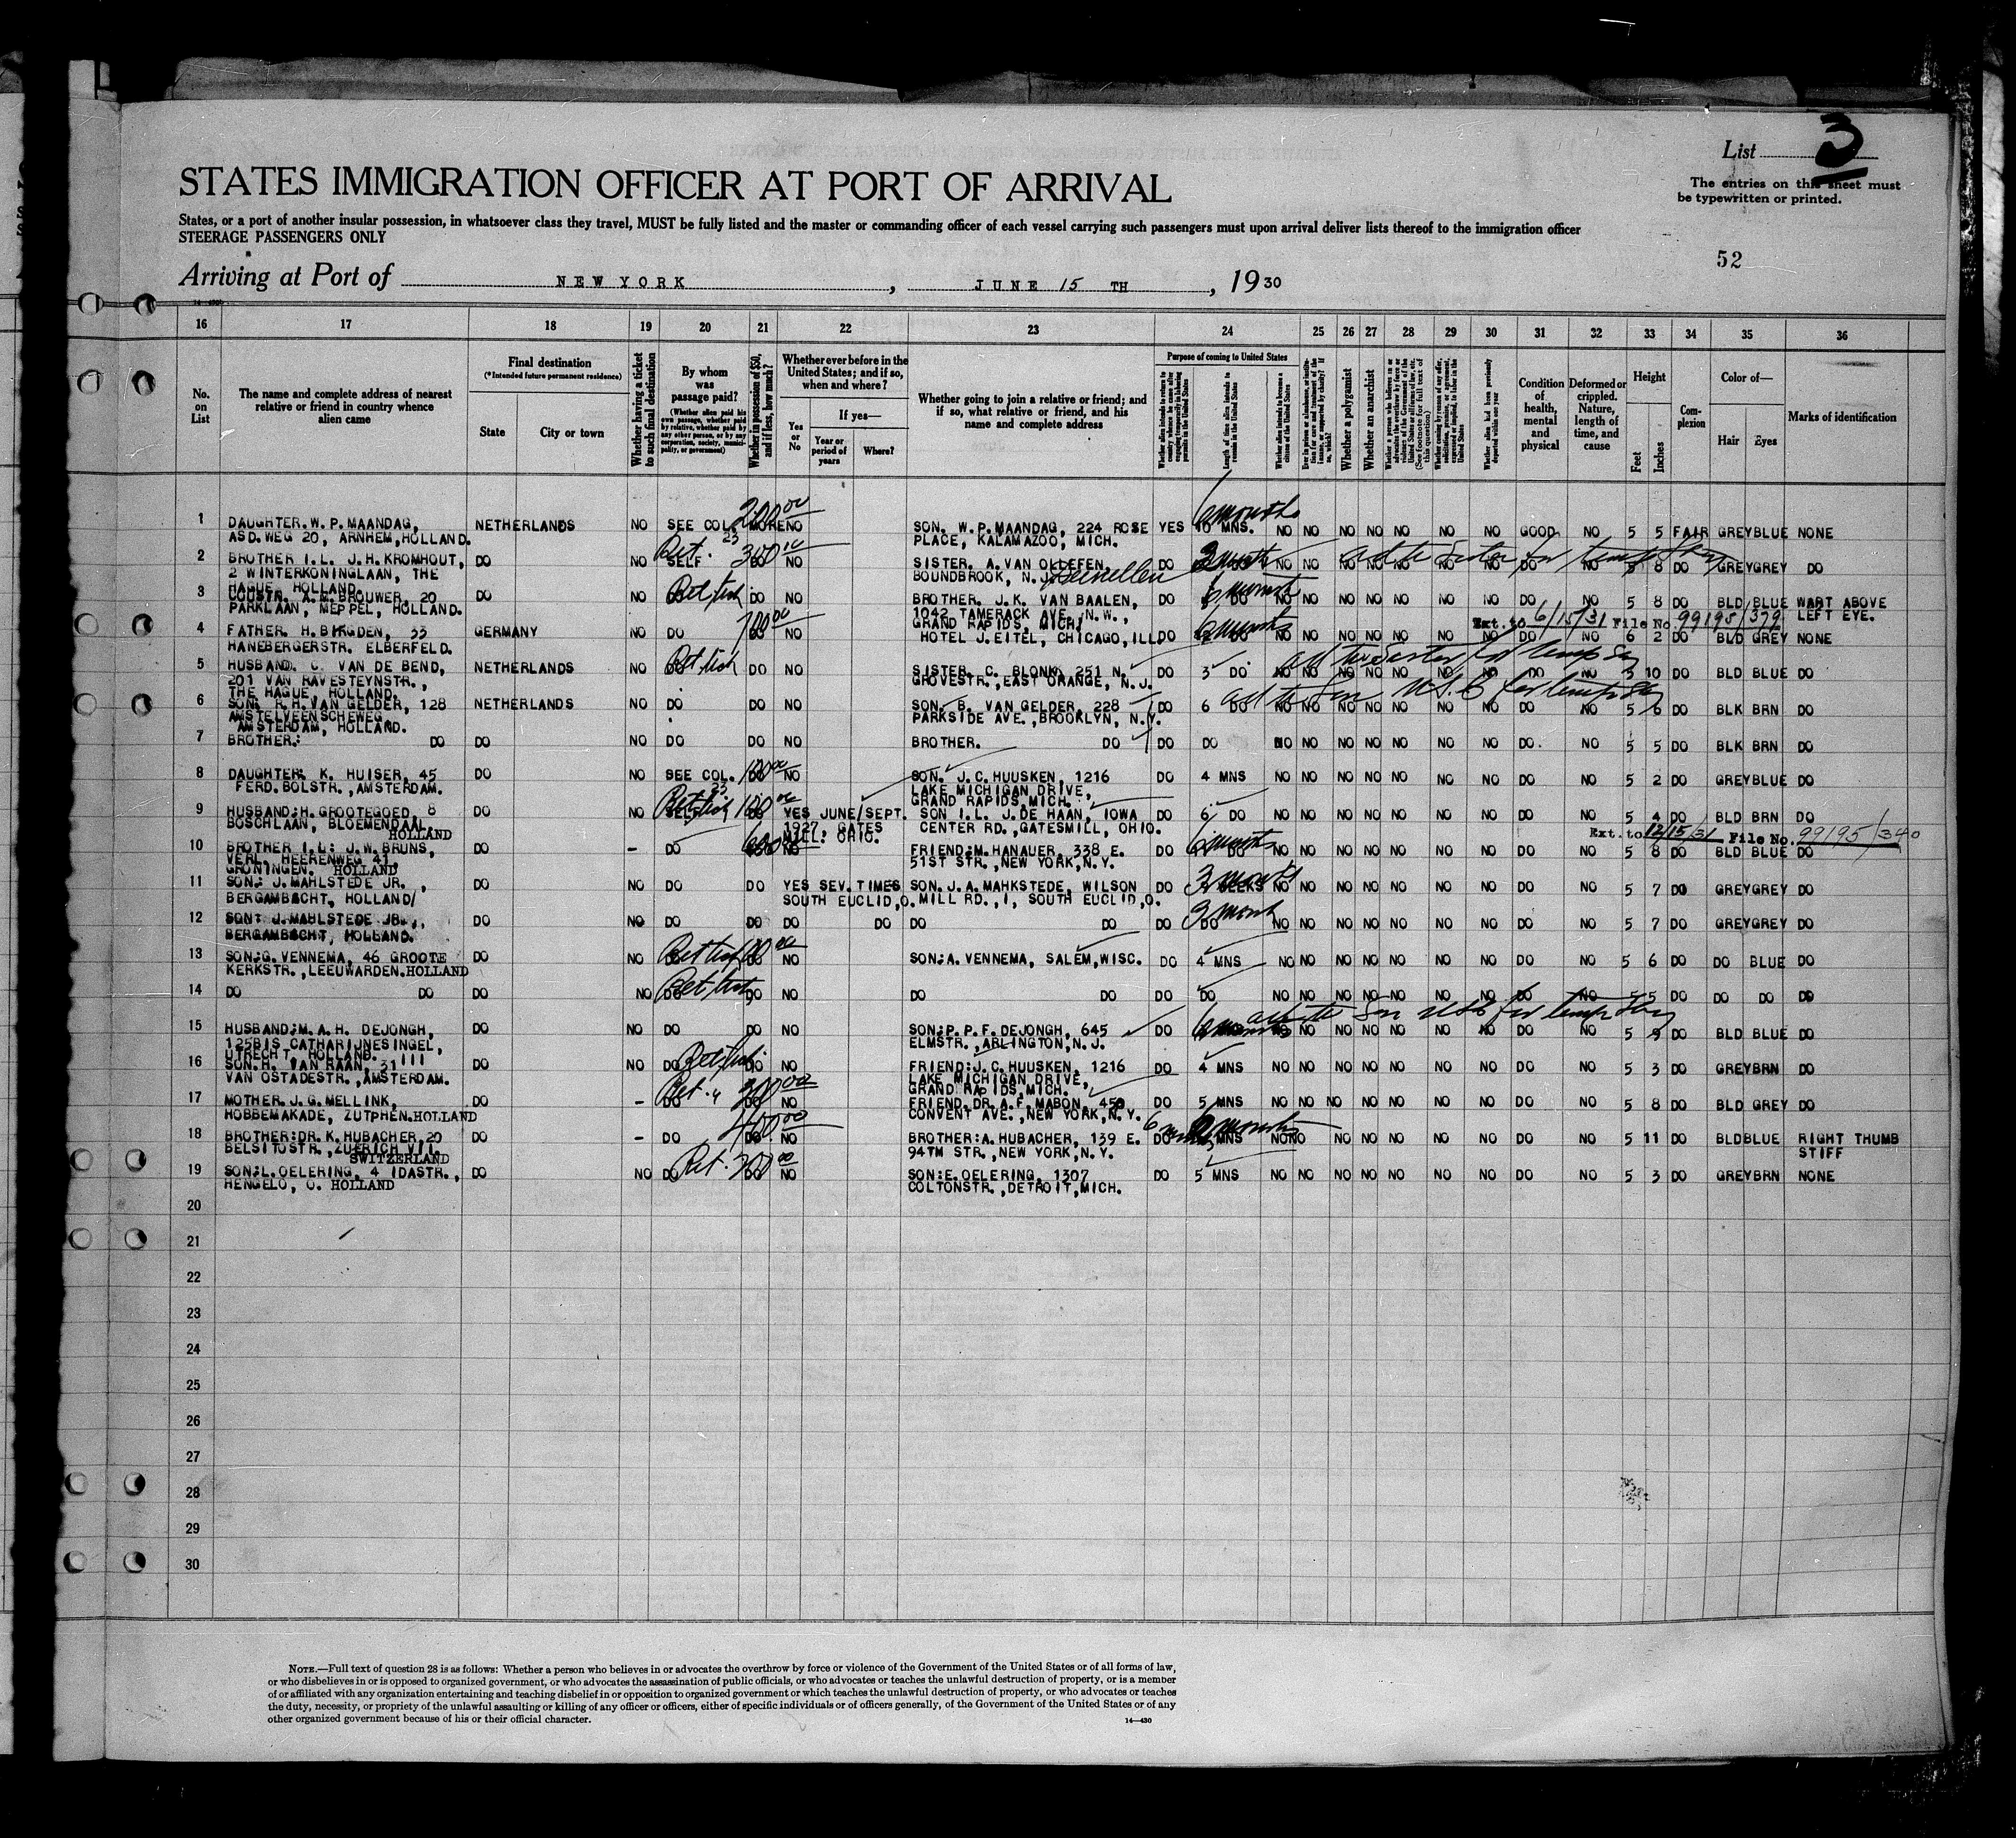 List 3
The entries on this sheet must
be typewritten or printed.
STATES IMMIGRATION OFFICER AT PORT OF ARRIVAL
States, or a port of another insular possession, in whatsoever class they travel, MUST be fully listed and the master or commanding officer of each vessel carrying such passengers must upon arrival deliver lists thereof to the immigration officer
STEERAGE PASSENGERS ONLY
52
Arriving at Port of NEW YORK, JUNE 15 TH, 1930
16 17 18 19 20 21 22 23 24 25 26 27 28 29 30 31 32 33 34 35 36
No. on List
The name and complete address of nearest relative or friend in country whence alien came
Final destination
(*Intended future permanent residence)
State City or town
Whether having a ticket to such final destination
By whom was passage paid?
Whether in possession of $50, and if less, how much?
Whether ever before in the United States; and if so, when and where?
Yes or No
If yes—
Year or period of years Where?
Whether going to join a relative or friend; and if so, what relative or friend, and his name and complete address
Purpose of coming to United States
Whether a polygamist
Whether an anarchist
Condition of health, mental and physical
Deformed or crippled. Nature, length of time, and cause
Height
Feet Inches
Complexion
Color of—
Hair Eyes
Marks of identification
1 DAUGHTER. W. P. MAANDAG, NETHERLANDS NO SEE COL. 23 MORE NO SON. W. P. MAANDAG, 224 ROSE YES 10 MNS. NO NO NO NO NO NO NO GOOD NO 5 5 FAIR GREY BLUE NONE
ASD. WEG 20, ARNHEM, HOLLAND. PLACE, KALAMAZOO, MICH.
2 BROTHER I.L. J.H. KROMHOUT, DO NO SELF DO NO SISTER. A. VAN OLLEFEN, DO NO NO NO NO NO NO NO DO NO 5 8 DO GREY GREY DO
2 WINTERKONINGLAAN, THE BOUNDBROOK, N.J.
HAGUE, HOLLAND.
3 COUSIN. A.M. BROUWER, 20 DO NO DO NO BROTHER. J.K. VAN BAALEN, DO DO NO NO NO NO NO NO NO DO NO 5 8 DO BLD BLUE WART ABOVE
PARKLAAN, MEPPEL, HOLLAND. 1042 TAMERACK AVE, N.W., LEFT EYE.
GRAND RAPIDS, MICH,
Ext. to 6/15/31 File No. 99195/379
4 FATHER. H. BIRGDEN, 33 GERMANY NO DO DO NO HOTEL J. EITEL, CHICAGO, ILL. DO 6 months NO NO NO NO NO NO NO DO NO 6 2 DO BLD GREY NONE
HANEBERGERSTR. ELBERFELD.
5 HUSBAND. C. VAN DE BEND, NETHERLANDS NO DO NO SISTER. C. BLONK, 251 N. DO 3 DO NO NO NO NO NO NO NO DO NO 5 10 DO BLD BLUE DO
201 VAN RAVESTEYNSTR., GROVESTR., EAST ORANGE, N.J.
THE HAGUE, HOLLAND.
6 SON. R.H. VAN GELDER, 128 NETHERLANDS NO DO DO NO SON. B. VAN GELDER, 228 DO 6 DO NO NO NO NO NO NO NO DO NO 5 6 DO BLK BRN DO
AMSTELVEENSCHEWEG, PARKSIDE AVE., BROOKLYN, N.Y.
AMSTERDAM, HOLLAND.
7 BROTHER: DO DO NO DO DO NO BROTHER. DO DO DO NO NO NO NO NO NO NO DO. NO 5 5 DO BLK BRN DO
8 DAUGHTER. K. HUISER, 45 DO NO SEE COL. 23 DO NO SON. J.C. HUUSKEN, 1216 DO 4 MNS NO NO NO NO NO NO NO DO NO 5 2 DO GREY BLUE DO
FERD. BOLSTR., AMSTERDAM. LAKE MICHIGAN DRIVE,
GRAND RAPIDS, MICH.
9 HUSBAND: H. GROOTEGOED, 8 DO NO SELF DO YES JUNE/SEPT. SON I.L. J. DE HAAN, IOWA DO 6 DO NO NO NO NO NO NO NO DO NO 5 4 DO BLD BRN DO
BOSCHLAAN, BLOEMENDAAL, 1927, GATES CENTER RD., GATESMILL, OHIO.
HOLLAND MILL. OHIO.
Ext. to 12/15/31 File No. 99195/340
10 BROTHER I.L: J.W. BRUNS, DO - DO NO FRIEND: M. HANAUER, 338 E. DO 6 months NO NO NO NO NO NO NO DO NO 5 8 DO BLD BLUE DO
VERL. HEERENWEG 41, 51ST STR., NEW YORK, N.Y.
GRONINGEN. HOLLAND
11 SON: J. MAHLSTEDE JR., DO NO DO DO YES SEV. TIMES SON. J.A. MAHKSTEDE, WILSON DO 3 months NO NO NO NO NO NO NO DO NO 5 7 DO GREY GREY DO
BERGAMBACHT, HOLLAND/ SOUTH EUCLID, O. MILL RD., 1, SOUTH EUCLID, O.
12 SON: J. MAHLSTEDE JR., DO NO DO DO DO DO DO DO DO DO NO NO NO NO NO NO NO DO NO 5 7 DO GREY GREY DO
BERGAMBACHT, HOLLAND.
13 SON: G. VENNEMA, 46 GROOTE DO NO DO NO SON: A. VENNEMA, SALEM, WISC. DO 4 MNS NO NO NO NO NO NO NO DO NO 5 6 DO DO BLUE DO
KERKSTR., LEEUWARDEN. HOLLAND
14 DO DO DO NO DO DO NO DO DO DO DO NO NO NO NO NO NO NO DO NO 5 5 DO DO DO DO
15 HUSBAND: M.A.H. DEJONGH, DO NO DO DO NO SON: P.P.F. DEJONGH, 645 DO NO NO NO NO NO NO NO DO NO 5 DO BLD BLUE DO
125BIS CATHARIJNESINGEL, ELMSTR., ARLINGTON, N.J.
UTRECHT, HOLLAND.
16 SON. H. VAN RAAN, 31 III DO NO DO DO NO FRIEND: J.C. HUUSKEN, 1216 DO 4 MNS NO NO NO NO NO NO NO DO NO 5 3 DO GREY BRN DO
VAN OSTADESTR., AMSTERDAM. LAKE MICHIGAN DRIVE,
GRAND RAPIDS, MICH.
17 MOTHER. J.G. MELLINK, DO - DO DO NO FRIEND. DR. A.F. MABON, 450 DO 5 MNS NO NO NO NO NO NO NO DO NO 5 8 DO BLD GREY DO
HOBBEMAKADE, ZUTPHEN. HOLLAND CONVENT AVE., NEW YORK, N.Y.
18 BROTHER: DR. K. HUBACHER, 20 DO - DO DO NO BROTHER: A. HUBACHER, 139 E. DO MNS NO NO NO NO NO NO NO DO NO 5 11 DO BLD BLUE RIGHT THUMB
BELSITOSTR., ZUERICH VII. 94TH STR., NEW YORK, N.Y. STIFF
SWITZERLAND
19 SON: L. OELERING, 4 IDASTR., DO NO DO DO NO SON: E. OELERING, 1307 DO 5 MNS NO NO NO NO NO NO NO DO NO 5 3 DO GREY BRN NONE
HENGELO, O. HOLLAND COLTONSTR., DETROIT, MICH.
20
21
22
23
24
25
26
27
28
29
30
NOTE.—Full text of question 28 is as follows: Whether a person who believes in or advocates the overthrow by force or violence of the Government of the United States or of all forms of law,
or who disbelieves in or is opposed to organized government, or who advocates the assassination of public officials, or who advocates or teaches the unlawful destruction of property, or is a member
of or affiliated with any organization entertaining and teaching disbelief in or opposition to organized government or which teaches the unlawful destruction of property, or who advocates or teaches
the duty, necessity, or propriety of the unlawful assaulting or killing of any officer or officers, either of specific individuals or of officers generally, of the Government of the United States or of any
other organized government because of his or their official character.
14—430